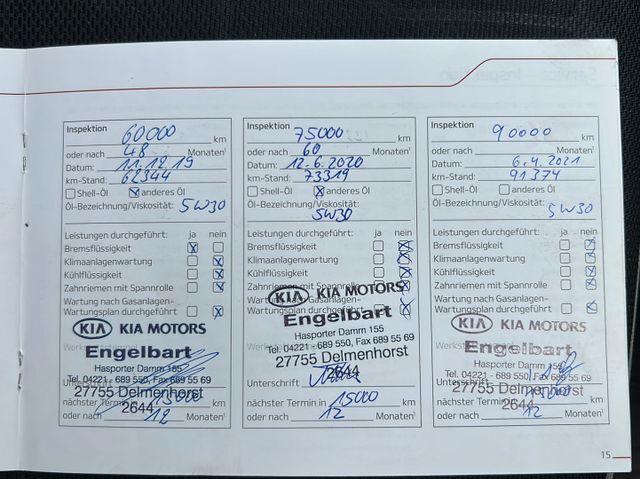 Inspektion 60000 km
oder nach 48 Monaten¹
Datum: 11.12.19
km-Stand: 62344
Shell-Öl anderes Öl
Öl-Bezeichnung/Viskosität: 5W30
Leistungen durchgeführt: ja nein
Bremsflüssigkeit
Klimaanlagenwartung
Kühlflüssigkeit
Zahnriemen mit Spannrolle
Wartung nach Gasanlagen-
Wartungsplan durchgeführt
KIA KIA MOTORS
Engelbart
Hasporter Damm 155
Tel. 04221 - 689 550, Fax 689 55 69
27755 Delmenhorst
2644
Unterschrift
nächster Termin in 15000 km
oder nach 12 Monaten¹
Inspektion 75000 km
oder nach 60 Monaten¹
Datum: 12.6.2020
km-Stand: 73319
Shell-Öl anderes Öl
Öl-Bezeichnung/Viskosität:
5W30
Leistungen durchgeführt: ja nein
Bremsflüssigkeit
Klimaanlagenwartung
Kühlflüssigkeit
Zahnriemen mit Spannrolle
Wartung nach Gasanlagen-
Wartungsplan durchgeführt
KIA KIA MOTORS
Engelbart
Hasporter Damm 155
Tel. 04221 - 689 550, Fax 689 55 69
27755 Delmenhorst
2644
Unterschrift
nächster Termin in 15000 km
oder nach 12 Monaten¹
Inspektion 90000 km
oder nach Monaten¹
Datum: 6.4.2021
km-Stand: 91374
Shell-Öl anderes Öl
Öl-Bezeichnung/Viskosität:
5W30
Leistungen durchgeführt: ja nein
Bremsflüssigkeit
Klimaanlagenwartung
Kühlflüssigkeit
Zahnriemen mit Spannrolle
Wartung nach Gasanlagen-
Wartungsplan durchgeführt
KIA KIA MOTORS
Engelbart
Hasporter Damm 155
Tel. 04221 - 689 550, Fax 689 55 69
27755 Delmenhorst
2644
Unterschrift
nächster Termin in km
oder nach 12 Monaten¹
15